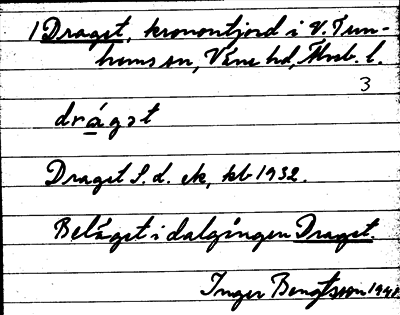 1 Draget, kronontjord i V. Tun-
hems sn, Väne hd, Älvsb. l.
3
drágət
Draget S. d. ek, kb 1932.
Beläget i dalgången Draget.
Inger Bengtsson 1941